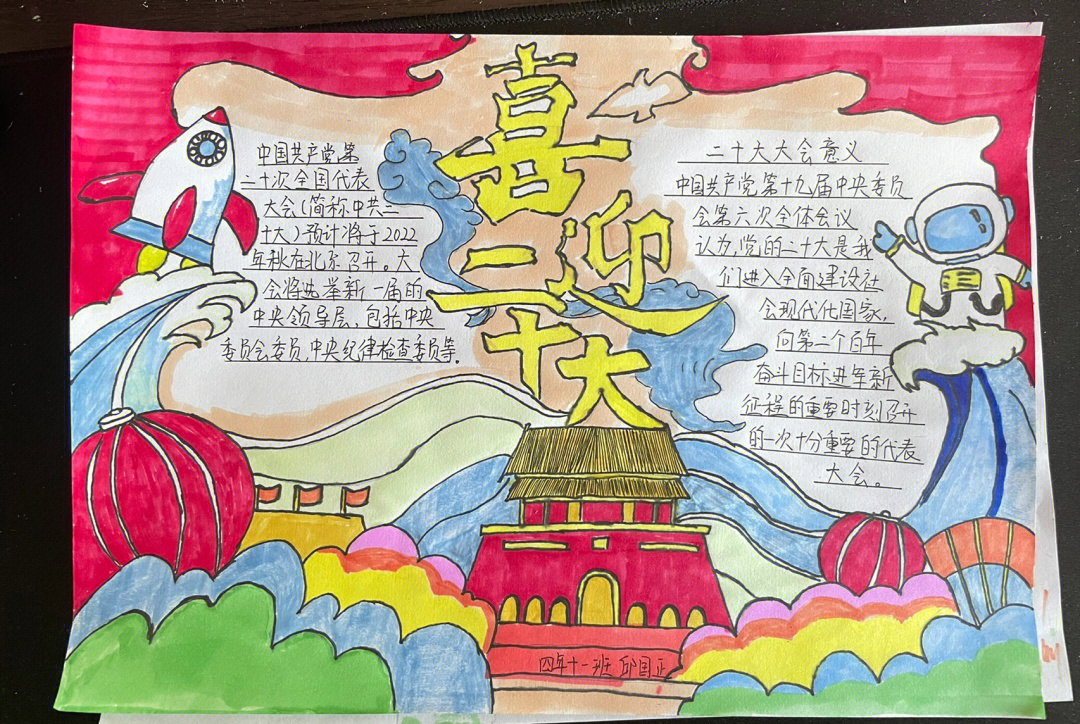 喜迎
二十大
中国共产党第
二十次全国代表
大会(简称中共二
十大)预计将于2022
年秋在北京召开。大
会将选举新一届的
中央领导层,包括中央
委员会委员,中央纪律检查委员等.
二十大大会意义
中国共产党第十九届中央委员
会第六次全体会议
认为,党的二十大是我
们进入全面建设社
会现代化国家,
向第二个百年
奋斗目标进军新
征程的重要时刻召开
的一次十分重要的代表
大会。
四年十一班 邱国正